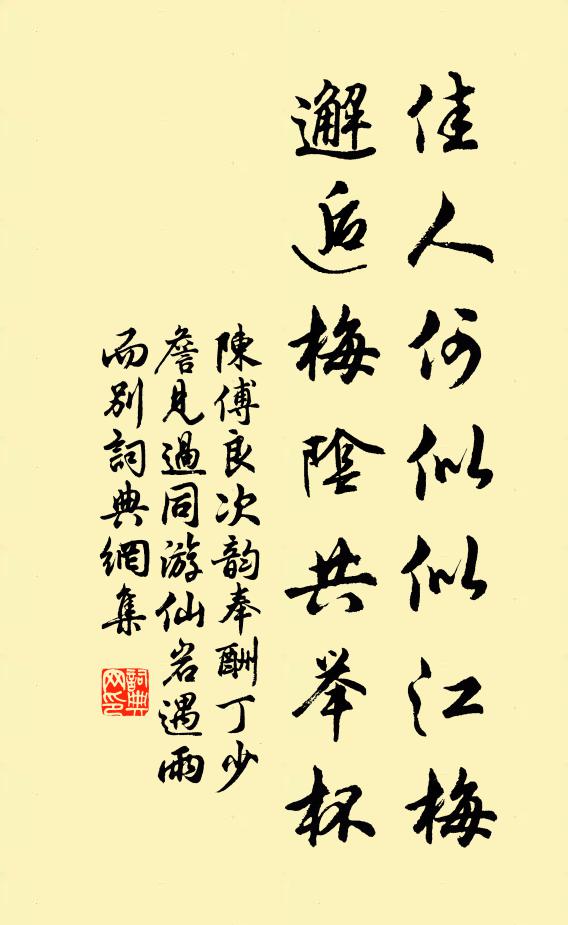 佳人何似似江梅
邂逅梅陰共举杯
陳傅良次韵奉酬丁少
詹見過同游仙岩遇雨
而别詞典網集
詞典网印